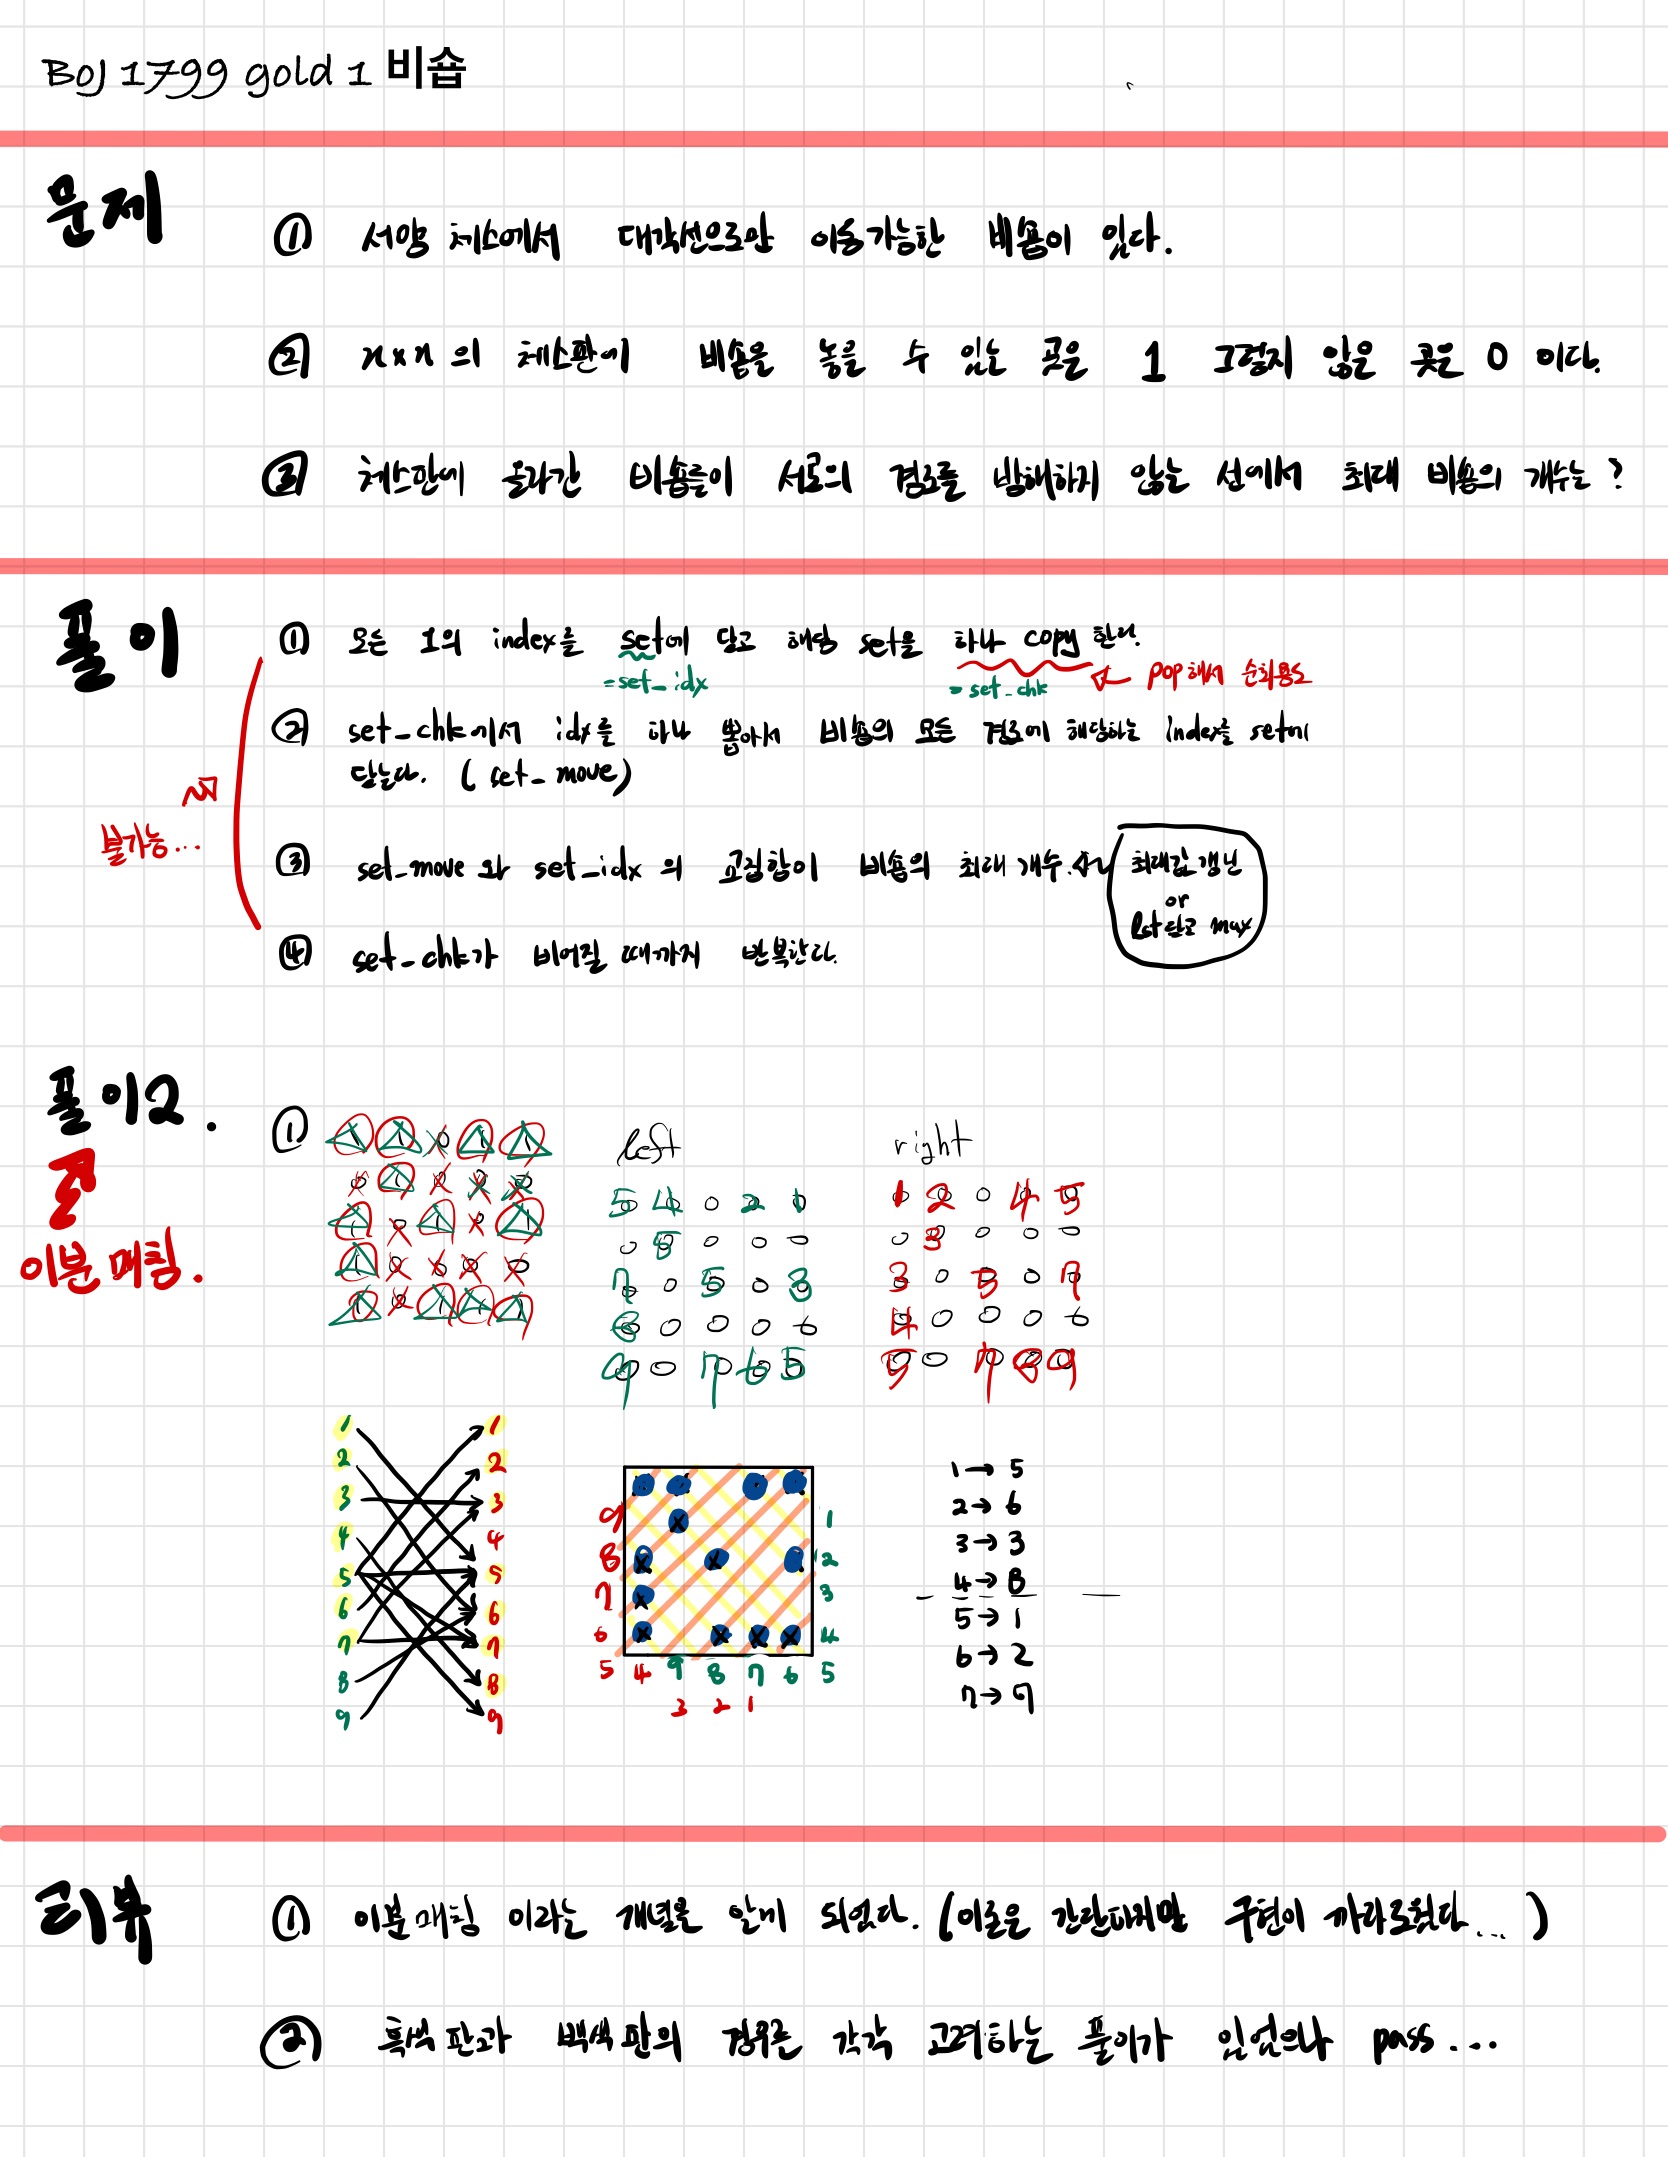 BOJ 1799 gold 1 비숍
문제
① 서양 체스에서 대각선으로만 이동가능한 비숍이 있다.
② n x n 의 체스판에 비숍을 놓을 수 있는 곳은 1 그렇지 않은 곳은 0 이다.
③ 체스판에 올라간 비숍들이 서로의 경로를 방해하지 않는 선에서 최대 비숍의 개수는?
풀이
① 모든 1의 index를 set에 담고 해당 set을 하나 copy 한다.
=set_idx
=set_chk
pop해서 순회용도
② set_chk에서 idx를 하나 뽑아서 비숍의 모든 경로에 해당하는 index를 set에
담는다. (set_move)
불가능...
③ set_move 와 set_idx 의 교집합이 비숍의 최대 개수.
최대값 갱신
or
lst 담고 max
④ set_chk가 비어질 때까지 반복한다.
풀이2.
이분 매칭.
①
1 1 0 1 1
0 1 0 0 0
1 0 1 0 1
1 0 0 0 0
1 0 1 1 1
left
5 4 0 2 1
0 5 0 0 0
7 0 5 0 3
8 0 0 0 0
9 0 7 6 5
right
1 2 0 4 5
0 3 0 0 0
3 0 5 0 7
4 0 0 0 0
5 0 7 8 9
1 1
2 2
3 3
4 4
5 5
6 6
7 7
8 8
9 9
9 1
8 2
7 3
6 4
5 4 9 8 7 6 5
3 2 1
1→5
2→6
3→3
4→8
5→1
6→2
7→9
리뷰
① 이분매칭 이라는 개념을 알게 되었다. (이론은 간단하지만 구현이 까다로웠다...)
② 흑색판과 백색판의 경우를 각각 고려하는 풀이가 있었으나 pass...